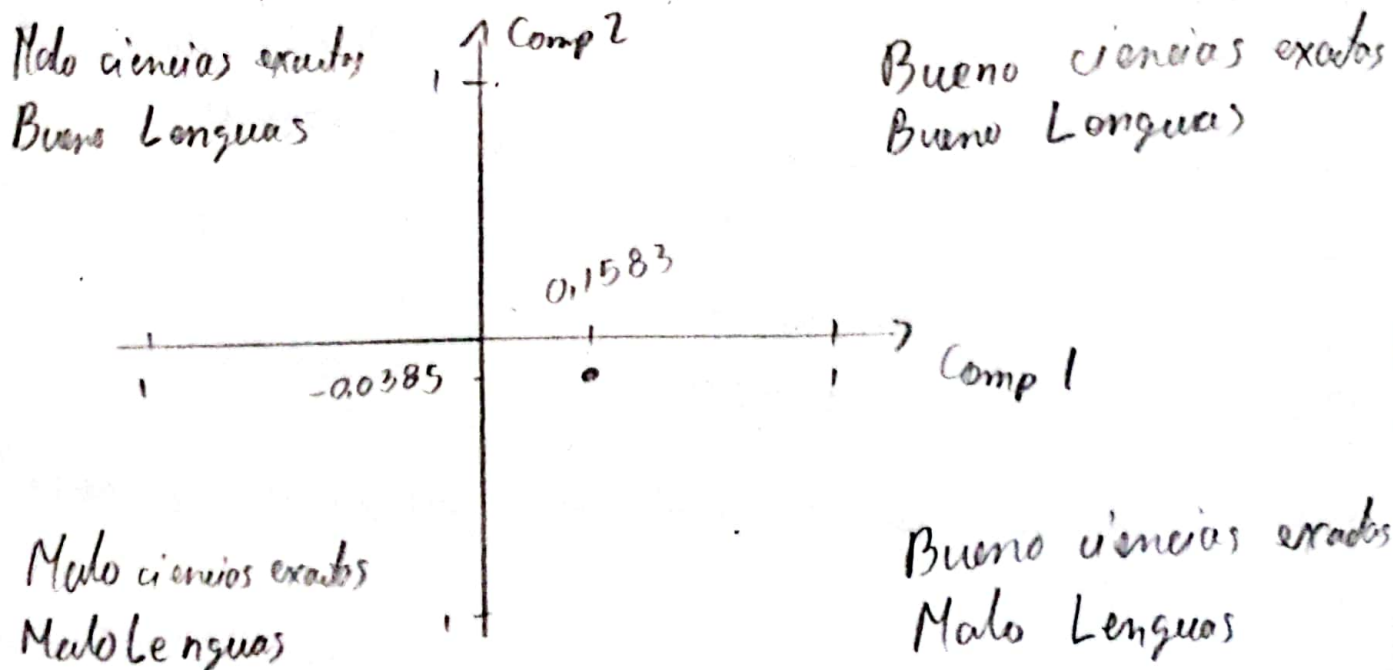 Comp 2
Malo ciencias exactas
Bueno Lenguas
1
Bueno ciencias exactas
Bueno Lenguas
0,1583
1
-0,0385
1
Comp 1
Malo ciencias exactas
Malo Lenguas
1
Bueno ciencias exactas
Malo Lenguas